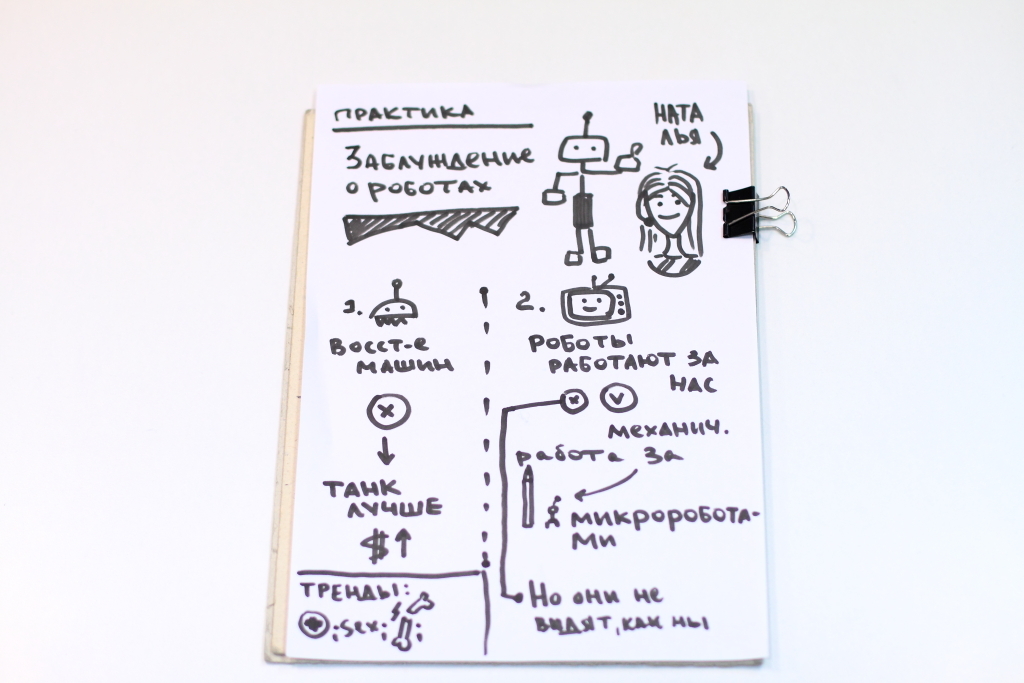 ПРАКТИКА
ЗАБЛУЖДЕНИЕ
О РОБОТАХ
НАТА
ЛЬЯ
1.
ВОССТ-Е
МАШИН
ТАНК
ЛУЧШЕ
$
ТРЕНДЫ:
; sex; ;
2.
РОБОТЫ
РАБОТАЮТ ЗА
НАС
МЕХАНИЧ.
работа За
МИКРОРОБОТА-
МИ
Но они не
ВИДЯТ, КАК МЫ